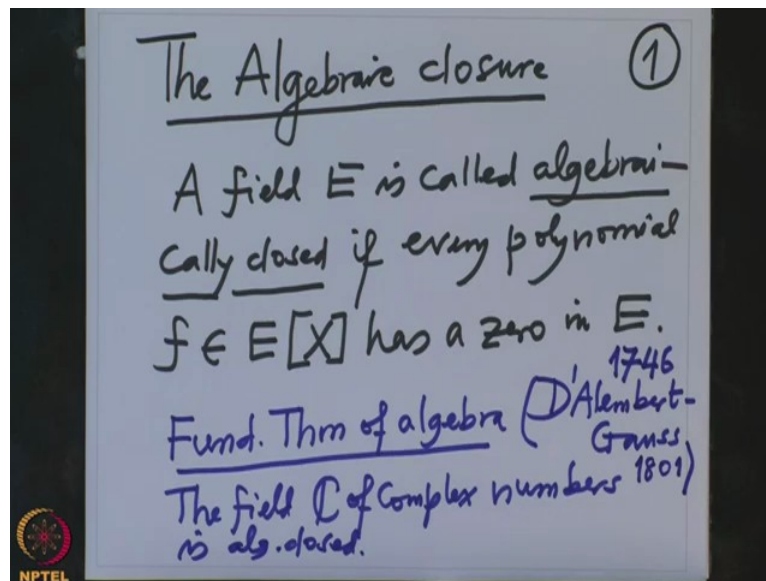 The Algebraic closure
①
A field E is called algebrai-
cally closed if every polynomial
f ∈ E[X] has a zero in E.
1746
Fund. Thm of algebra (D'Alembert-
Gauss
1801)
The field ℂ of complex numbers
is alg. closed.
NPTEL